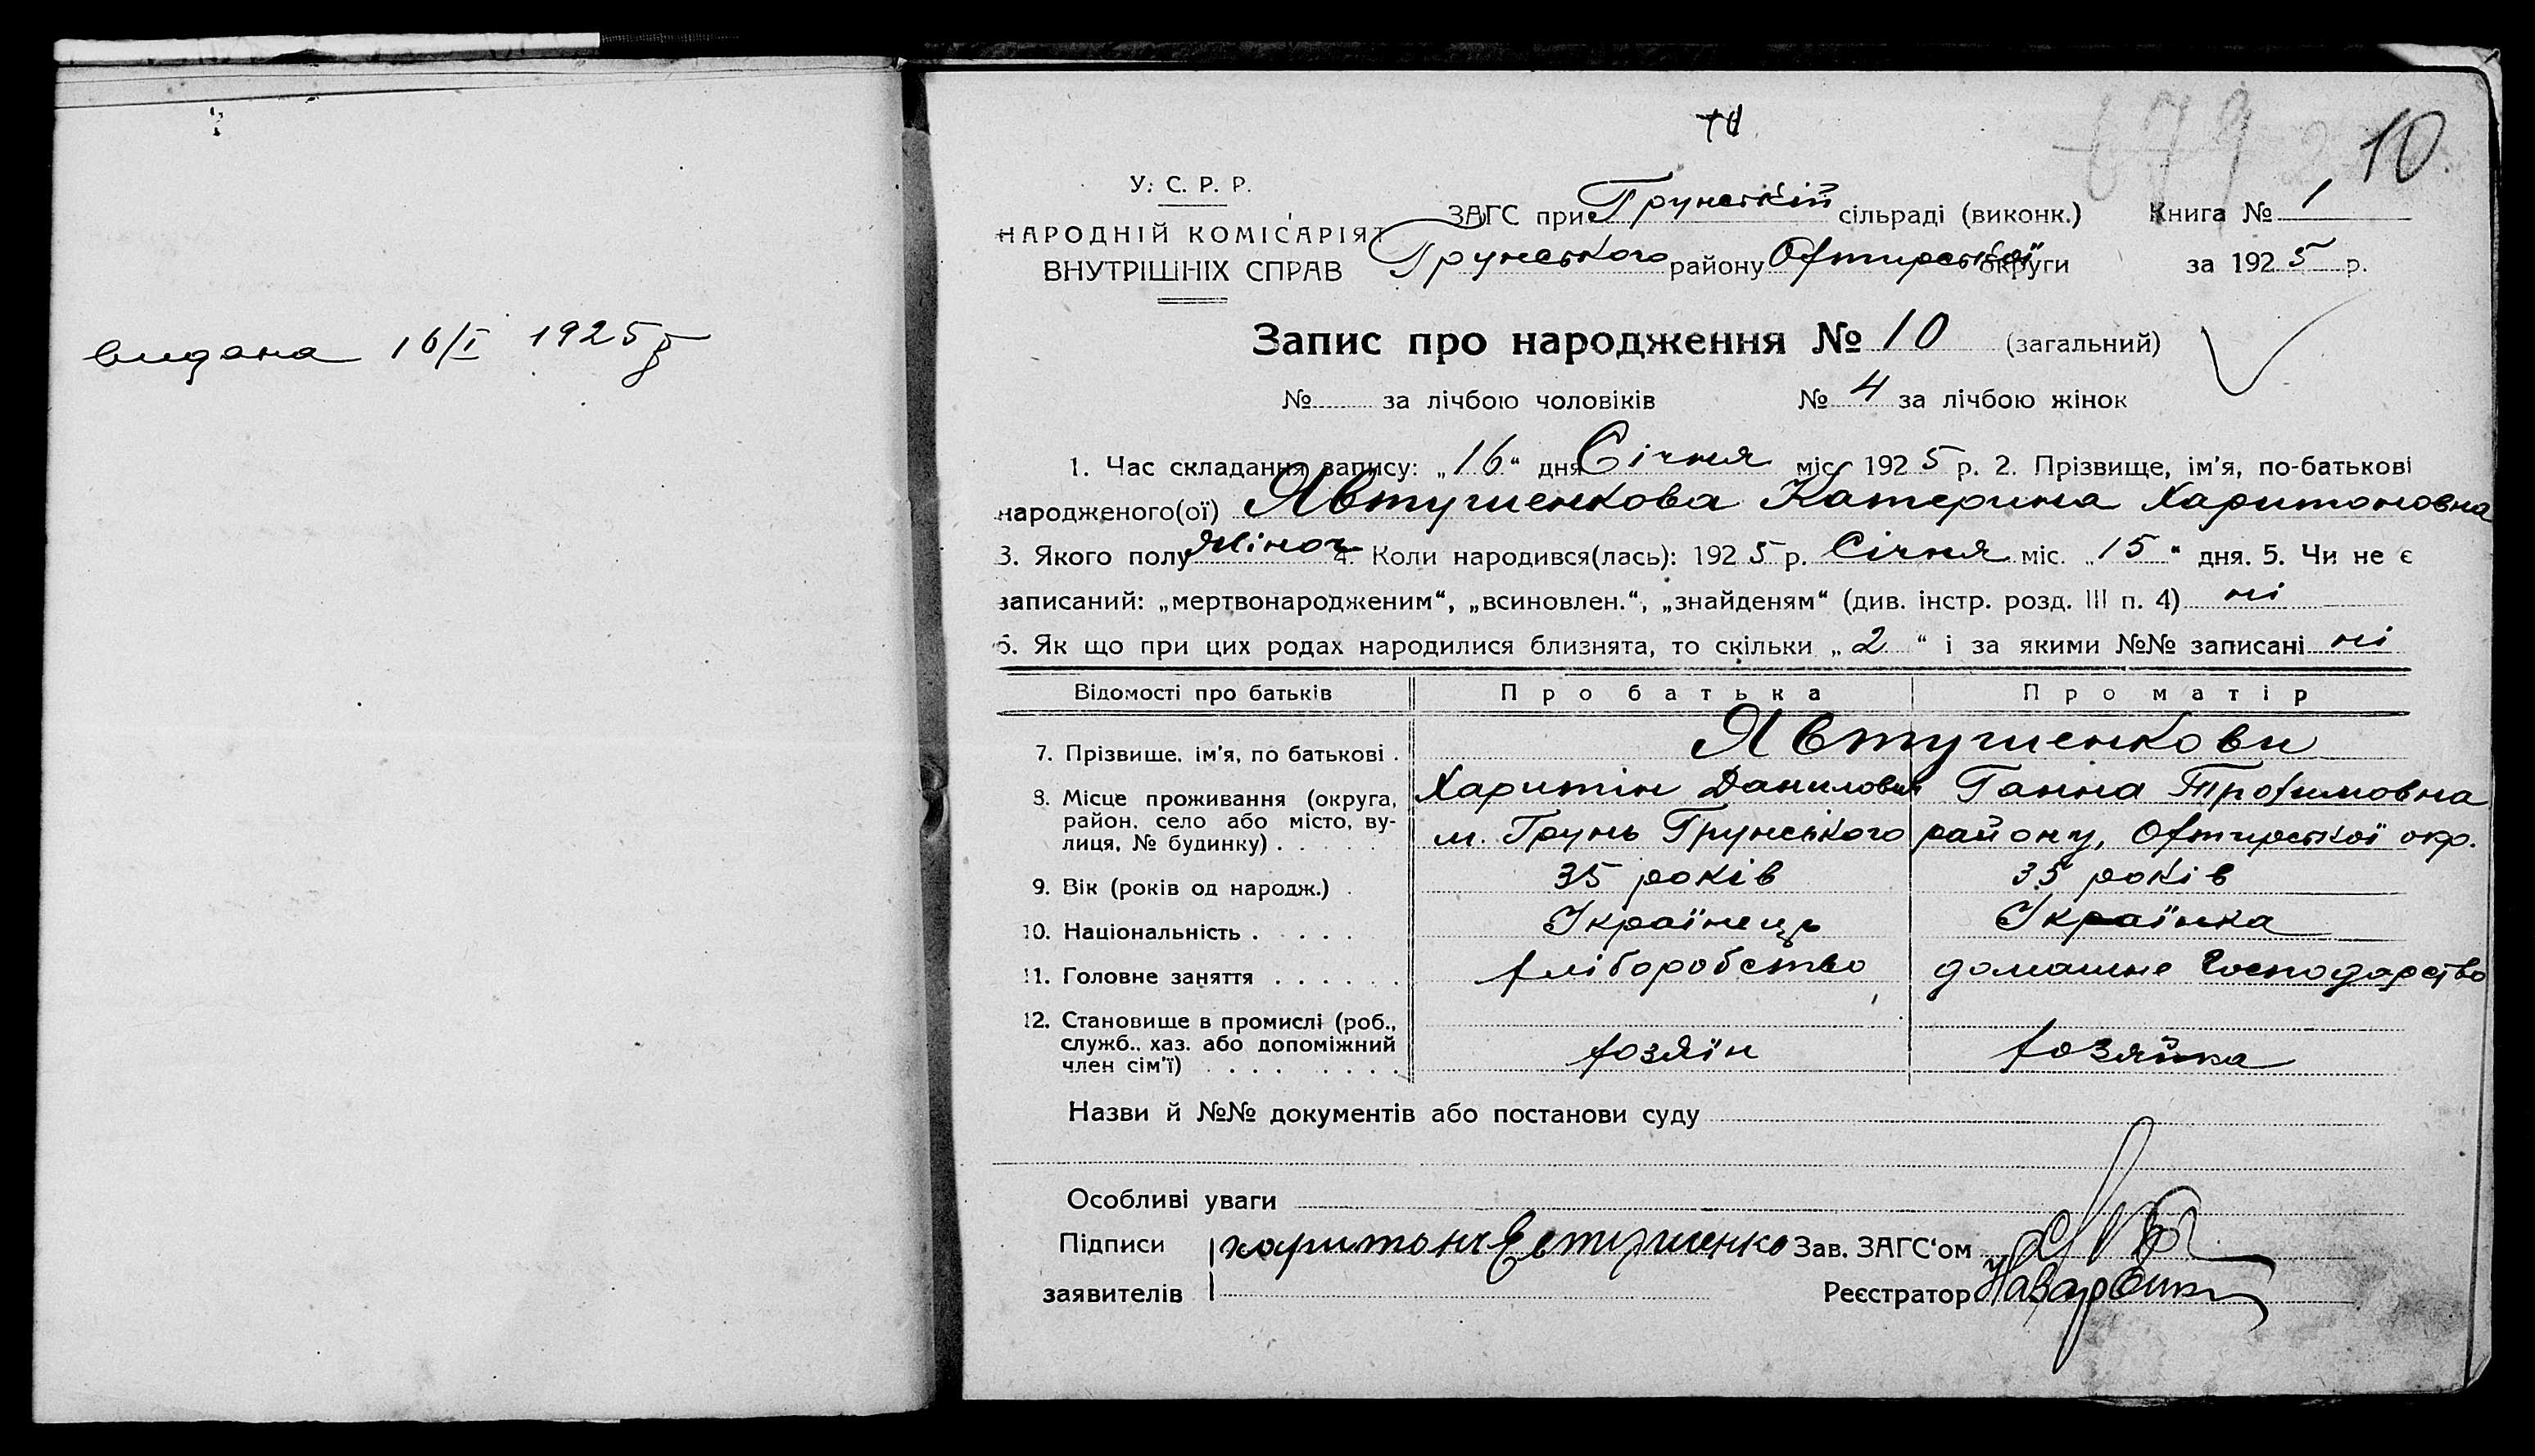 видана 16/I 1925 р
10
У. С. Р. Р.
НАРОДНІЙ КОМІСАРІЯТ
ВНУТРІШНІХ СПРАВ
ЗАГС при Грунській сільраді (виконк.) Книга № 1
Грунського району Охтирської округи за 1925 р.
Запис про народження № 10 (загальний)
№ за лічбою чоловіків № 4 за лічбою жінок
1. Час складання запису: „16“ дня Січня міс 1925 р. 2. Прізвище, ім'я, по-батькові
народженого(ої) Явтушенкова Катерина Харитоновна
3. Якого полу Жіноч 4. Коли народився(лась): 1925 р. Січня міс. „15“ дня. 5. Чи не є
записаний: „мертвонародженим“, „всиновлен.“, „знайденям“ (див. інстр. розд. III п. 4) ні
6. Як що при цих родах народилися близнята, то скільки „2“ і за якими №№ записані ні
Відомості про батьків Про батька Про матір
7. Прізвище, ім'я, по батькові . Явтушенкови
Харитін Данилович Ганна Трохимовна
8. Місце проживання (округа,
район, село або місто, ву-
лиця, № будинку) . . . . . м. Грунь Грунського району, Охтирської окр.
9. Вік (років од народж.) . 35 років 35 років
10. Національність . . . . . Українець Українка
11. Головне заняття . . . . . . хліборобство домашне господарство
12. Становище в промислі (роб.,
служб., хаз. або допоміжний
член сім'ї) . . . . . . . . хозяїн хозяйка
Назви й №№ документів або постанови суду
Особливі уваги
Підписи харитон Евтушенко Зав. ЗАГС'ом
заявителів Реєстратор